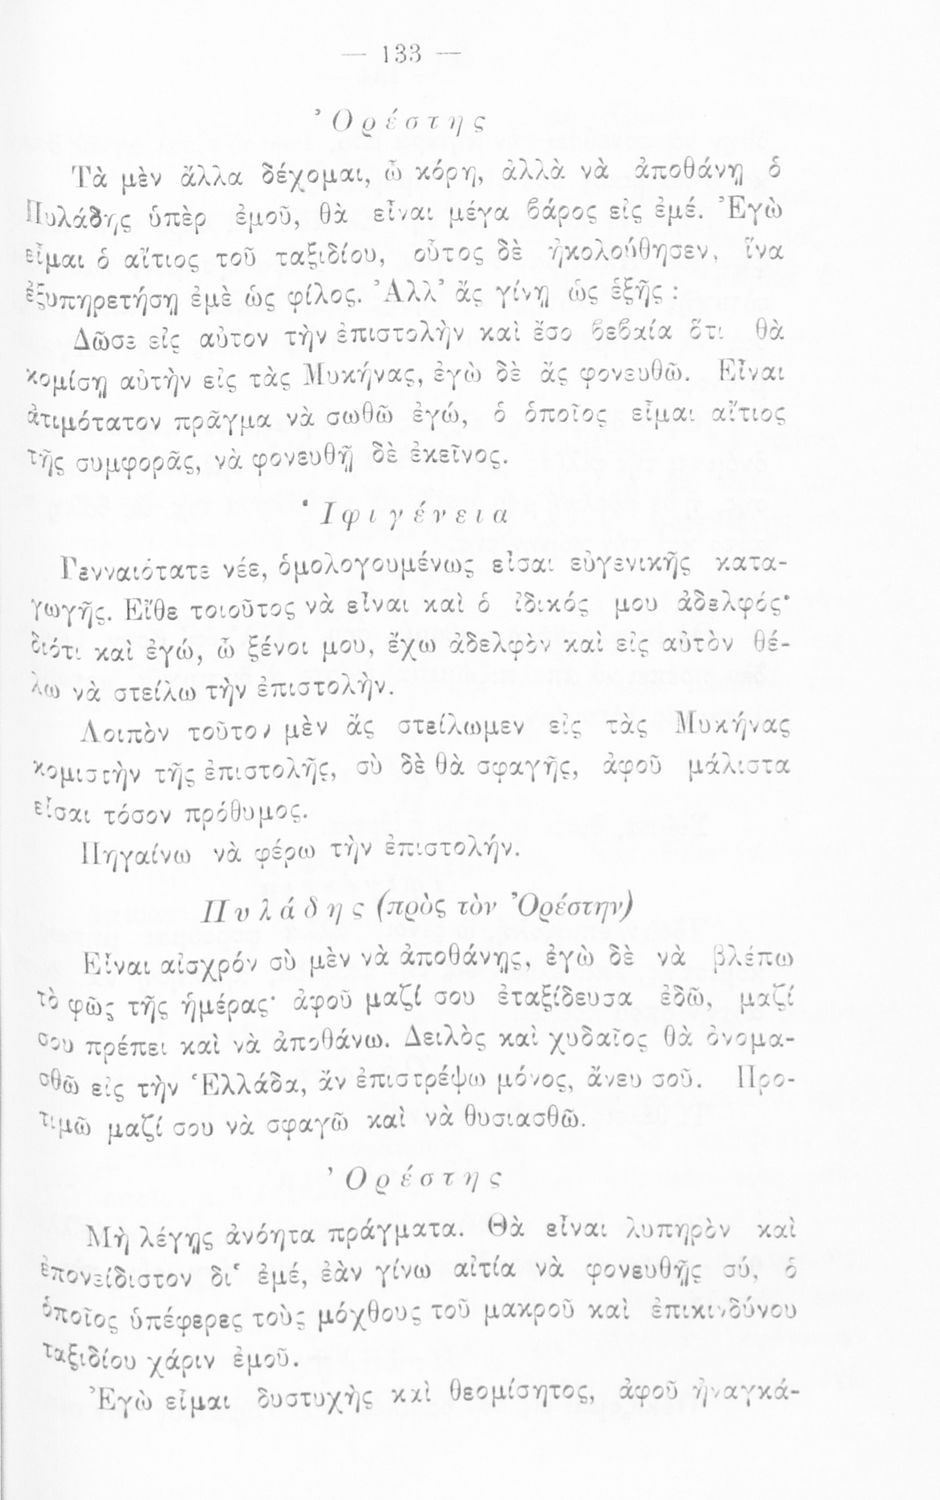 — 133 —
Ὀρέστης
Τὰ μὲν ἄλλα δέχομαι, ὦ κόρη, ἀλλὰ νὰ ἀποθάνῃ ὁ
Πυλάδης ὑπὲρ ἐμοῦ, θὰ εἶναι μέγα βάρος εἰς ἐμέ. Ἐγὼ
εἶμαι ὁ αἴτιος τοῦ ταξιδίου, οὗτος δὲ ἠκολούθησεν, ἵνα
ἐξυπηρετήσῃ ἐμὲ ὡς φίλος. Ἀλλ’ ἄς γίνῃ ὡς ἑξῆς :
Δῶσε εἰς αὐτον τὴν ἐπιστολὴν καὶ ἔσο βεβαία ὅτι θὰ
κομίσῃ αὐτὴν εἰς τὰς Μυκήνας, ἐγὼ δὲ ἄς φονευθῶ. Εἶναι
ἀτιμότατον πρᾶγμα νὰ σωθῶ ἐγώ, ὁ ὁποῖος εἶμαι αἴτιος
τῆς συμφορᾶς, νὰ φονευθῇ δὲ ἐκεῖνος.
Ἰφιγένεια
Γενναιότατε νέε, ὁμολογουμένως εἶσαι εὐγενικῆς κατα-
γωγῆς. Εἴθε τοιοῦτος νὰ εἶναι καὶ ὁ ἰδικός μου ἀδελφός·
διότι καὶ ἐγώ, ὦ ξένοι μου, ἔχω ἀδελφὸν καὶ εἰς αὐτὸν θέ-
λω νὰ στείλω τὴν ἐπιστολὴν.
Λοιπὸν τοῦτον μὲν ἄς στείλωμεν εἰς τὰς Μυκήνας
κομιστὴν τῆς ἐπιστολῆς, σὺ δὲ θὰ σφαγῆς, ἀφοῦ μάλιστα
εἶσαι τόσον πρόθυμος.
Πηγαίνω νὰ φέρω τὴν ἐπιστολήν.
Πυλάδης (πρὸς τὸν Ὀρέστην)
Εἶναι αἰσχρόν σὺ μὲν νὰ ἀποθάνῃς, ἐγὼ δὲ νὰ βλέπω
τὸ φῶς τῆς ἡμέρας· ἀφοῦ μαζί σου ἐταξίδευσα ἐδῶ, μαζί
σου πρέπει καὶ νὰ ἀποθάνω. Δειλὸς καὶ χυδαῖος θὰ ὀνομα-
σθῶ εἰς τὴν Ἑλλάδα, ἄν ἐπιστρέψω μόνος, ἄνευ σοῦ. Προ-
τιμῶ μαζί σου νὰ σφαγῶ καὶ νὰ θυσιασθῶ.
Ὀρέστης
Μὴ λέγῃς ἀνόητα πράγματα. Θὰ εἶναι λυπηρὸν καὶ
ἐπονείδιστον δι‘ ἐμέ, ἐὰν γίνω αἰτία νὰ φονευθῇς σύ, ὁ
ὁποῖος ὑπέφερες τοὺς μόχθους τοῦ μακροῦ καὶ ἐπικινδύνου
ταξιδίου χάριν ἐμοῦ.
Ἐγὼ εἶμαι δυστυχὴς καὶ θεομίσητος, ἀφοῦ ἠναγκά-